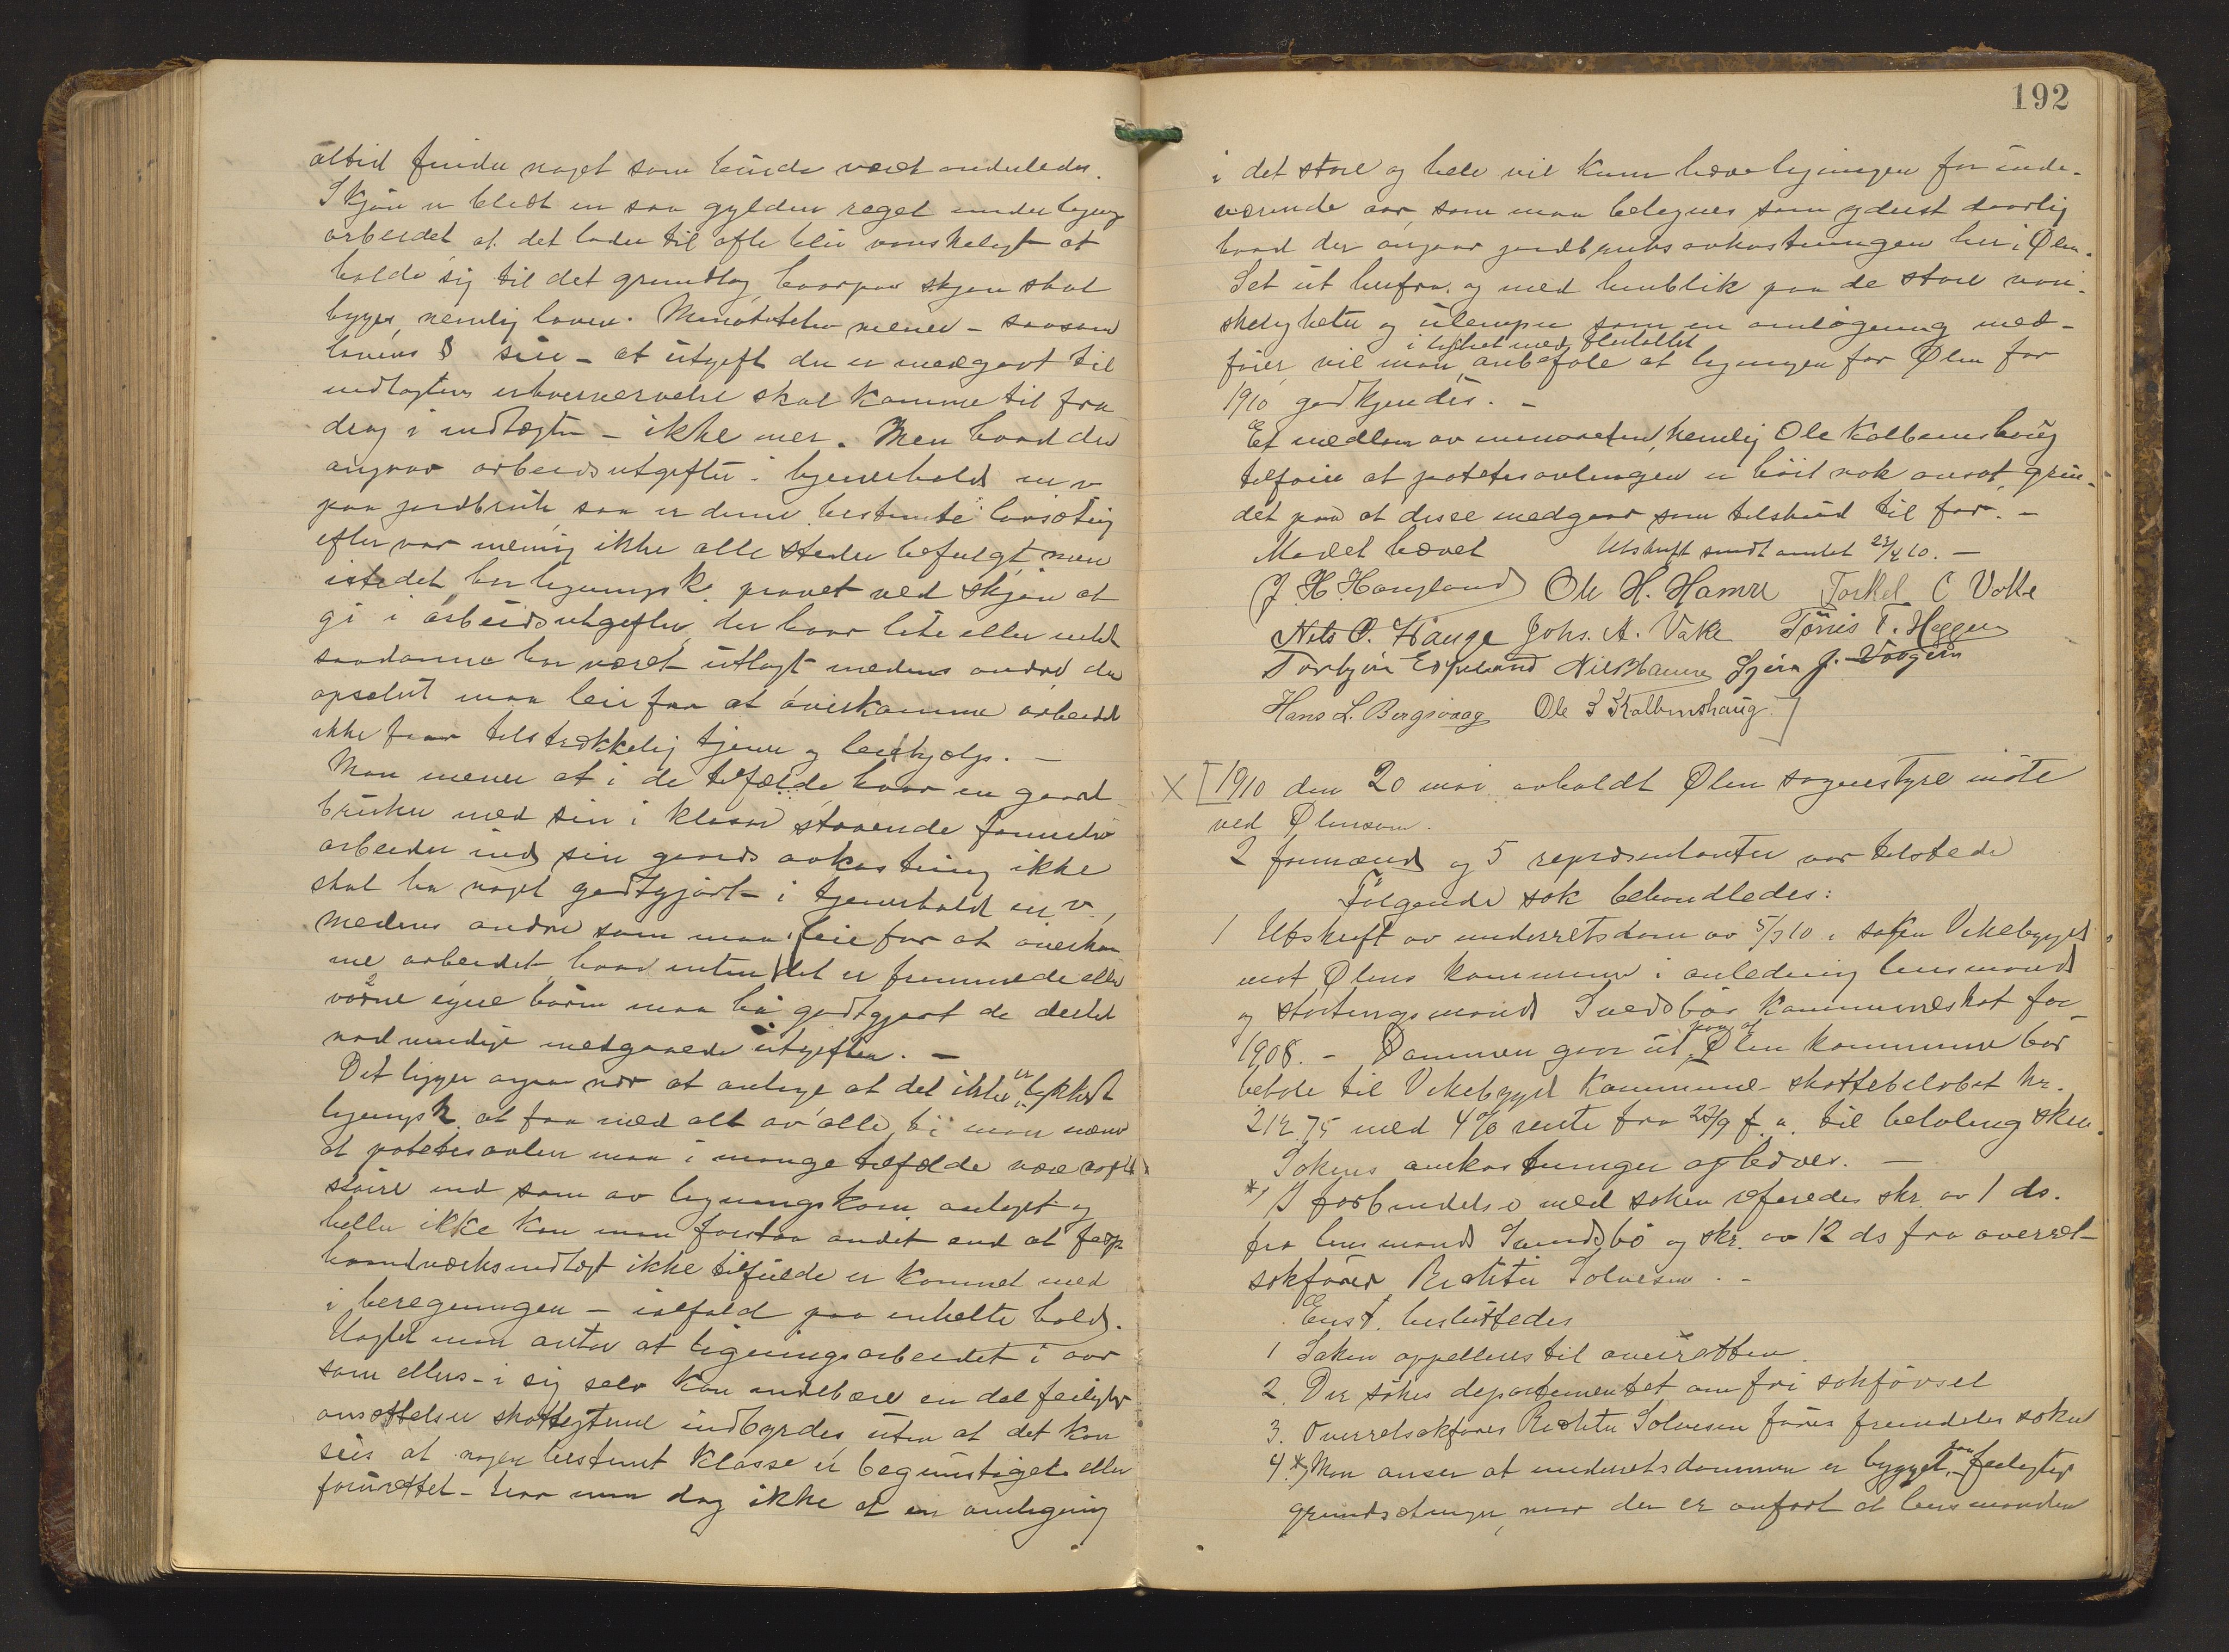 altid finde noget som burde været anderledes.
Skjøn er blet en saa gylden regel under lignings
arbeidet at det lader til ofte blir vanskelegt at
holde sig til det grundlag hvorpaa skjøn skal
bygges, nemlig loven. Minoriteten mener – saasom
lovens § sier – at utgift der er medgaat til
indtægtens erhvervelse skal komme til fra
drag i indtægten – ikke mer. Men hvad der
angaar arbeidsutgifter i tjenerhold m v
paa jordbruk, saa er denne bestemte lovsætning
efter vor mening ikke alle steder befulgt, men
istedet har ligningsk. prøvet ved skjøn at
gi i arbeidsutgifter, der hvor lite eller intet
saadanne har været utlagt medens andre der
apselut maa leie for at overkomme arbeidet
ikke faar tilstrækkelig tjener og leiehjælp. –
Man mener at i de tilfælde hvor en gaard
bruker med sin i klasse staaende familie
arbeider ind sin gaards avkastning ikke
skal ha noget godtgjørt i tjenerhold m v.,
medens andre som maa leie for at overkom
me arbeidet, hvad enten det er fremmede eller
vogsne egne børn maa ha godtgjort de dertil
nødvendige medgaaede utgifter. –
Det ligger ogsaa nær at antage at det ikke er lykkedt
ligningsk. at faa med alt av alle, ti man mener
at potetesavlen maa i mange tilfælde være noget
større end som av ligningskom antaget og
heller ikke kan man forstaa andet end at
haandværksindtægt ikke tilfulde er kommet med
i beregningen – ialfald paa enkelte hold.
Uagtet man antar at ligningsarbeidet i aar
som ellers – i sig selv kan indebære en del feilagtige
ansættelser skatteyterne indbyrdes, uten at det kan
sies at nogen bestemt klasse er begunstiget eller
forurættet – tror man dog ikke at en omligning
192
i det store og hele vil kunne hæve ligningen for inde-
værende aar som maa betegnes som yderst daarlig
hvad der angaar jordbruksavkastningen her i Ølen.
Set ut herfra og med henblik paa de store van-
skeligheter og ulemper som en omligning med-
i likhet med flertallet
fører, vil man anbefale at ligningen for Ølen for
1910 godkjendes. –
Et medlem av minoriteten, nemlig Ole Kolbenshaug
tilføier at potetesavlingen er høit nok ansat, grun-
det paa at disse medgaar som tilskud til for. –
Mødet hævet Utskrift sendt amtet 23/4 10. –
J. H. Haugland Ole H. Hamre Torkel C Vakke
Nels O. Hauge Johs. A. Vake Tønnes T. Heggen
Torbjørn Espeland Nils Hamre Sjem J. Vaagen
Hans L. Bergsvaag Ole S Kolbenshaug
X [1910 den 20 mai avholdt Ølen sognestyre møte
ved Ølensøen.
2 formænd og 5 repræsentanter var tilstede
Følgende sak behandledes:
1 Utskrift av underretsdom av 5/3 10 i saken Vikebygd
mot Ølens kommune i anledning lensmand
og stortingsmand Svendsbøs kommuneskat for
1908. – Dommen gaar ut paa at Ølen kommune bør
betale til Vikebygd kommune skattebeløbet kr.
212.75 med 4% rente fra 27/9 f. a. til betaling sker.
Sakens omkostninger ophæves. –
*/ I forbindelse med saken referedes skr. av 1 ds.
fra lensmand Svendsbø og skr. av 12 ds fra overret-
sakfører Richter Solvesen. –
Enst. besluttedes
1 Saken appelleres til overretten.
2. Der søkes departementet om fri sakførsel
3. Overretsakfører Richter Solvesen fører fremdeles saken
4.*) Man anser at underretsdommen er bygget paa feilagtige
grundsætninger, naar der er anført at lensmanden